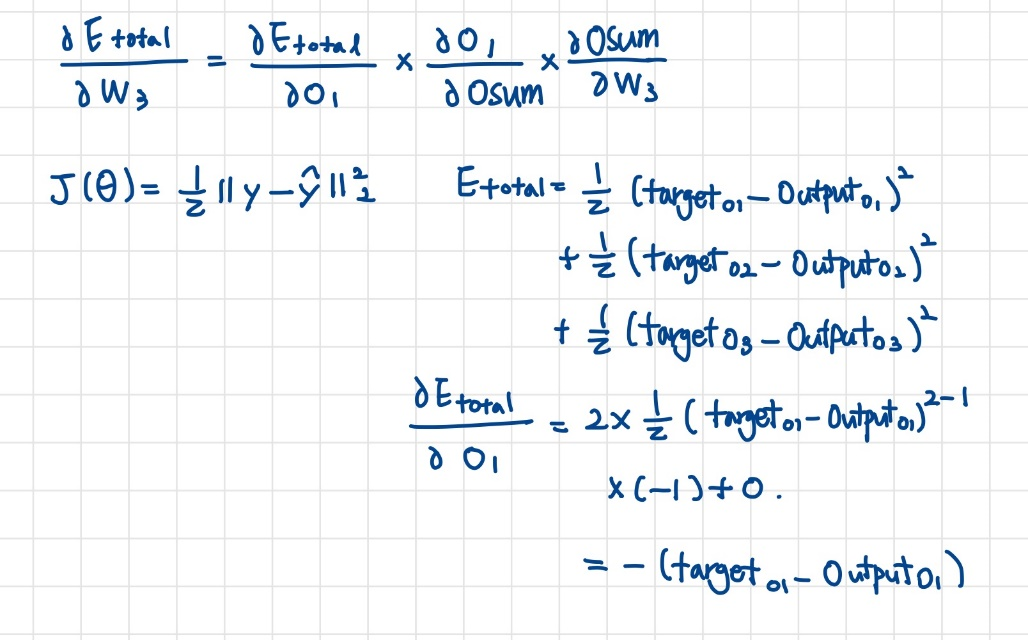 ∂E total / ∂W₃ = ∂E total / ∂O₁ × ∂O₁ / ∂Osum × ∂Osum / ∂W₃
J(θ) = 1/2 ||y − ŷ||²₂
E total = 1/2 (target o₁ − Output o₁)²
+ 1/2 (target o₂ − Output o₂)²
+ 1/2 (target o₃ − Output o₃)²
∂E total / ∂O₁ = 2 × 1/2 (target o₁ − Output o₁)²⁻¹
× (−1) + 0 .
= − (target o₁ − Output o₁)